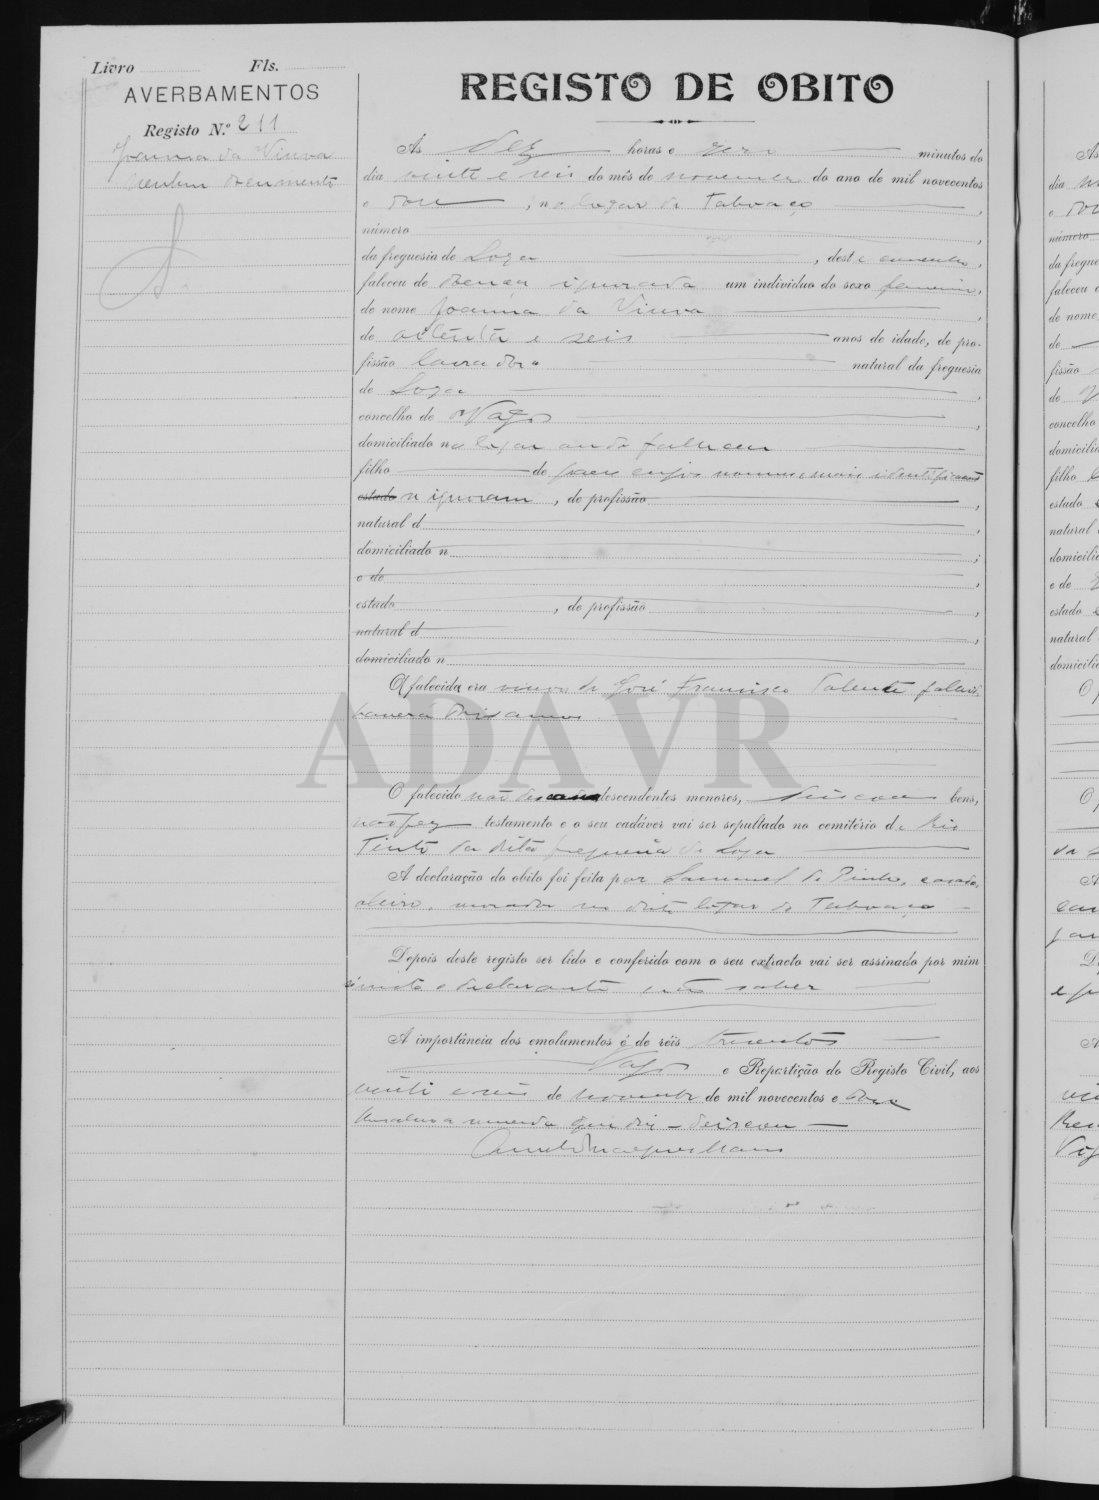 Livro Fls.
AVERBAMENTOS
Registo N.º 211
Joanna da Viuva
Nenhum documento
REGISTO DE OBITO
Ás dez horas e zero minutos do
dia vinte e seis do mês de novembro do ano de mil novecentos
e doze, no lugar de Taboaço,
número,
da freguesia de Soza, deste concelho,
faleceu de doença ignorada um indivíduo do sexo feminino,
de nome Joanna da Viuva,
de oitenta e seis anos de idade, de pro-
fissão lavradora natural da freguesia
de Soza,
concelho de Vagos,
domiciliado no lugar onde faleceu
filho de paes cujos nomes e mais identificação
estado se ignoram, de profissão,
natural d,
domiciliado n;
e de,
estado, de profissão,
natural d,
domiciliado n
A falecida era viuva de José Francisco falecido
havera dois annos
O falecido não descendentes menores, deixou bens,
não fez testamento e o seu cadáver vai ser sepultado no cemitério de Rio
Tinto da dita freguesia de Soza
A declaração do obito foi feita por Samuel de Pinho, casado,
oleiro, morador no dito lugar de Taboaço
Depois deste registo ser lido e conferido com o seu extracto vai ser assinado por mim
visto o declarante não saber
A importância dos emolumentos é de réis trezentos
Vagos e Repartição do Registo Civil, aos
vinte e seis de novembro de mil novecentos e doze
Resalvo a emenda que diz - deixou
ADAVR